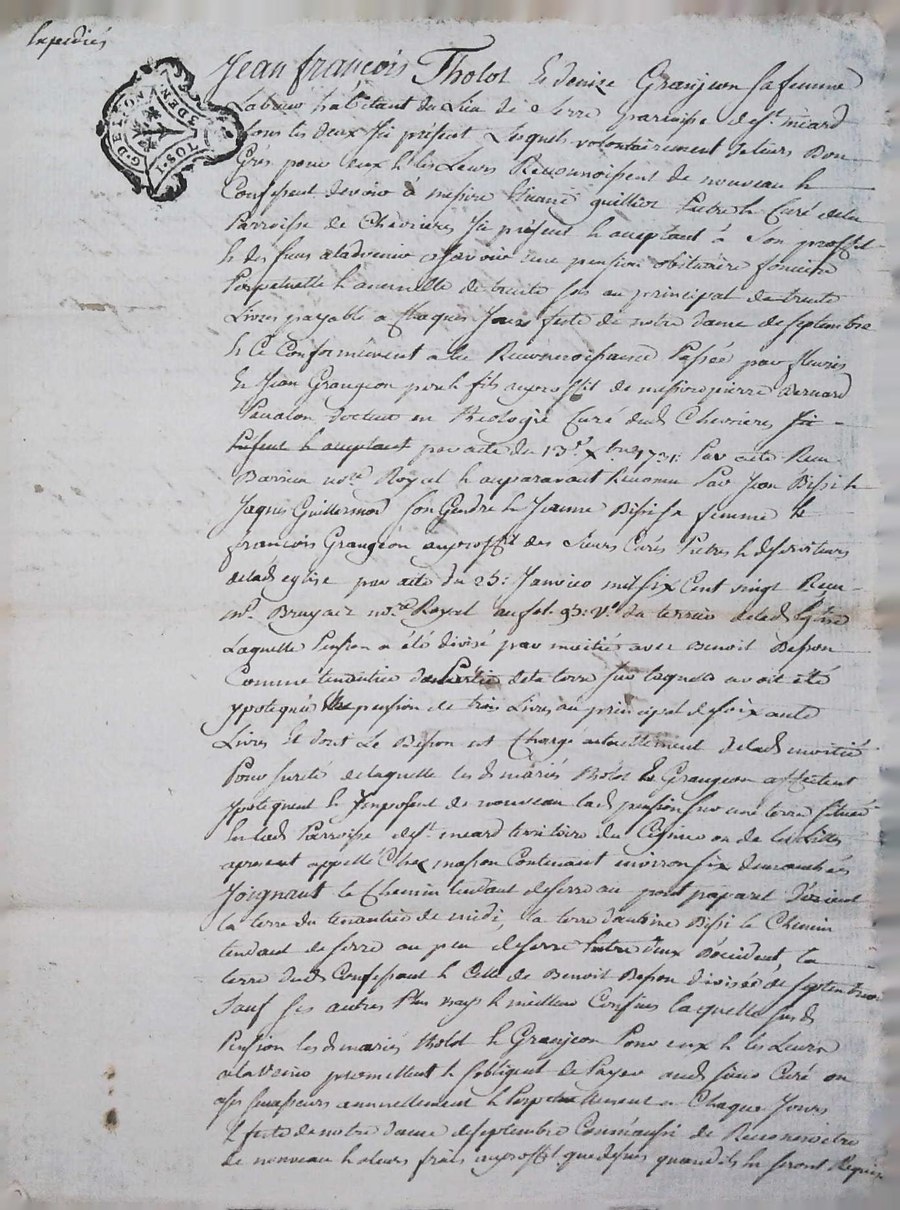 Expediés
G. DE LYON
3 DEN
Jean françois Tholot et denize Granjeon sa femme
Laboureur habitant du Lieu de Serre parroisse de st. méard
tous les deux Ici présent Lesquels volontairement de leurs Bon
Grés pour eux et les Leurs Reconnoissent de nouveau et
Confessent devoir à messire guilliot Prêtre et Curé de la
Parroisse de Chevrieres Ici présent et acceptant à son proffit
et des siens à ladvenir sçavoir une pension obituaire fonciere
Perpetuelle et annuelle de trente sols au principal de trente
Livres payable a Chaque Jours feste de notre Dame de septembre
et Ce Conformément a la Reconnoissance Passée par
et Jean Grangeon pere et fils au proffit de messire pierre Bernard
docteur en theologie Curé dud. Chevrieres Ici
présent et acceptant par acte du 13e Xbre 1731 Par acte Recu
Barrieu nore. Royal et auparavant Reconnu Par Jean Bissi et
Jaques Guillermon son Gendre et Jeanne Bissi sa femme et
françois Grangeon au proffit des sieurs Curés Pretres et deserviteurs
de lad. eglise par acte du 25: Janvier mil six Cent vingt Recu
me. nore. Royal au fol. 93: vo. du terrier de lad. Eglise
Laquelle Pension a été divisé par moitié avec Benoit Besson
Comme tenantier de la terre sur laquelle avoit été
ypotequé pension de trois Livres au principal de soixante
Livres et dont Le Besson est Chargé actuellement de lad. moitié
Pour sureté de laquelle les d. mariés Tholot et Grangeon affectent
ypotequent et Imposent de nouveau lad. pension sur une terre située
en lad. Parroisse de st. meard territoire de ou de
apresent appellé Chez masson Contenant environ six
Joignant le Chemin tendant de serre au pont paparel d'orient
la terre du tenantier de midi, la terre d'antoine Bissi le Chemin
tendant de serre au de serre Entre deux d'occident la
terre dud. Confessant et Celle de Benoit Besson divisée de septentrion
Sauf ses autres Plus vrays et meilleur Confins laquelle susd.
Pension les d. mariés tholot et Granjeon Pour eux et les Leurs
a lavenir promettent et sobligent de Payer aud. sieur Curé ou
a ses successeurs annuellement et Perpetuellement a Chaque Jours
et feste de notre Dame de septembre Comm'aussi de Reconnoître
de nouveau et a leurs frais au proffit que dessus quand ils En seront Requis